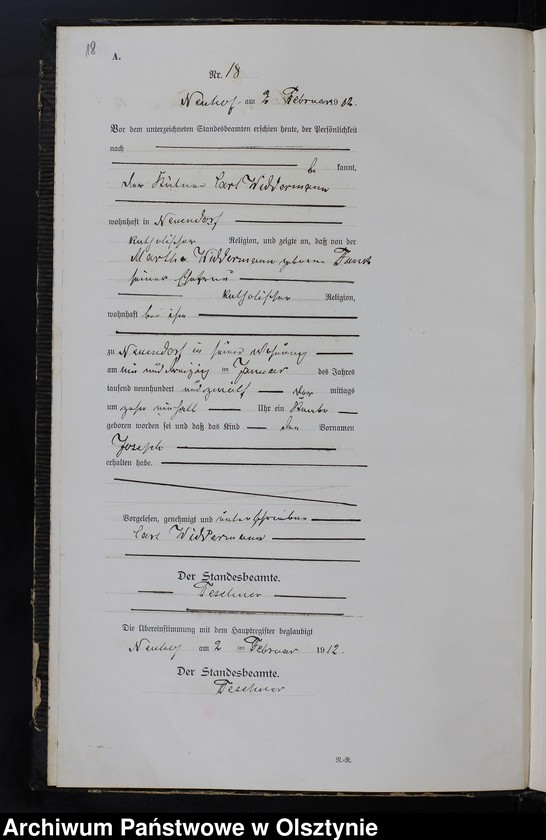 18
A.
Nr. 18
Neuhof am 2 Februar 1912.
Vor dem unterzeichneten Standesbeamten erschien heute, der Persönlichkeit
nach
be kannt,
der Käthner Carl Widdermann
wohnhaft in Neuendorf
katholischer Religion, und zeigte an, daß von der
Martha Widdermann geborne
seiner Ehefrau
katholischer Religion,
wohnhaft bei ihm
zu Neuendorf in seiner Wohnung
am ein und dreizig ten Januar des Jahres
tausend neunhundert und zwölf vor mittags
um zehn einhalb Uhr ein Knabe
geboren worden sei und daß das Kind den Vornamen
Joseph
erhalten habe.
Vorgelesen, genehmigt und unterschrieben
Carl Widdermann
Der Standesbeamte.
Teschner
Die Übereinstimmung mit dem Hauptregister beglaubigt
Neuhof am 2 ten Februar 1912.
Der Standesbeamte.
Teschner
N.-R.
Archiwum Państwowe w Olsztynie